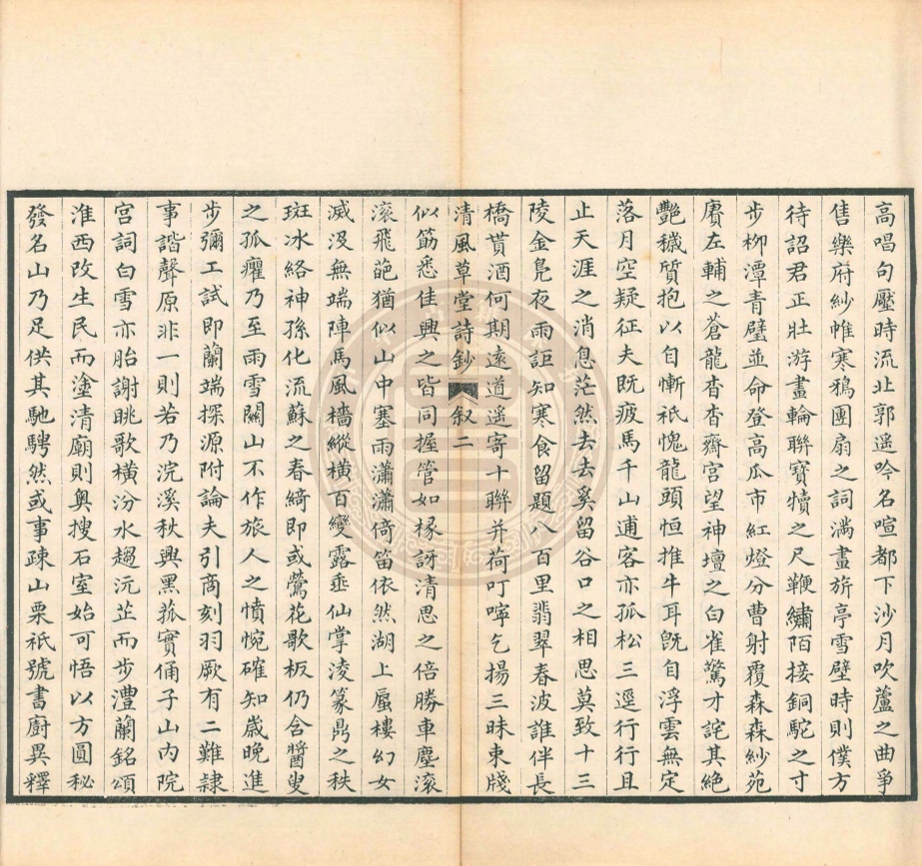 高唱句壓時流北郭遥吟名喧都下沙月吹蘆之曲爭
售樂府紗帷寒鴉團扇之詞滿畫旂亭雪壁時則僕方
待詔君正壯游畫輪聯寶犢之尺鞭繡陌接銅駝之寸
步柳潭青璧並命登高瓜市紅燈分曹射覆森森紗苑
賡左輔之蒼龍杳杳齋宫望神壇之白雀驚才詫其絕
艷穢質抱以自慚祇愧龍頭恒推牛耳旣自浮雲無定
落月空疑征夫既疲馬千山逋客亦孤松三逕行行且
止天涯之消息茫然去去奚留谷口之相思莫致十三
陵金鳧夜雨詎知寒食留題八百里翡翠春波誰伴長
橋貰酒何期遠道遥寄十聯并荷叮嚀乞揚三昧東牋
清風草堂詩鈔 叙二
似筋悉佳興之皆同握管如椽訝清思之倍勝車塵滚
滚飛葩猶似山中塞雨瀟瀟倚笛依然湖上蜃樓幻女
滅没無端陣馬風檣縱横百變露垂仙掌淩篆鼎之秩
斑冰絡神孫化流蘇之春綺即或鶯花歌板仍含醫叟
之孤癯乃至雨雪關山不作旅人之憤惋確知歲晚進
步彌工試即蘭端探源附論夫引商刻羽厥有二難隷
事諧聲原非一則若乃浣溪秋興黑菰實俑子山内院
宫詞白雪亦胎謝眺歌横汾水趨沅芷而步澧蘭銘頌
淮西改生民而塗清廟則奥搜石室始可悟以方圓秘
發名山乃足供其馳騁然或事疎山栗祇號書廚異釋